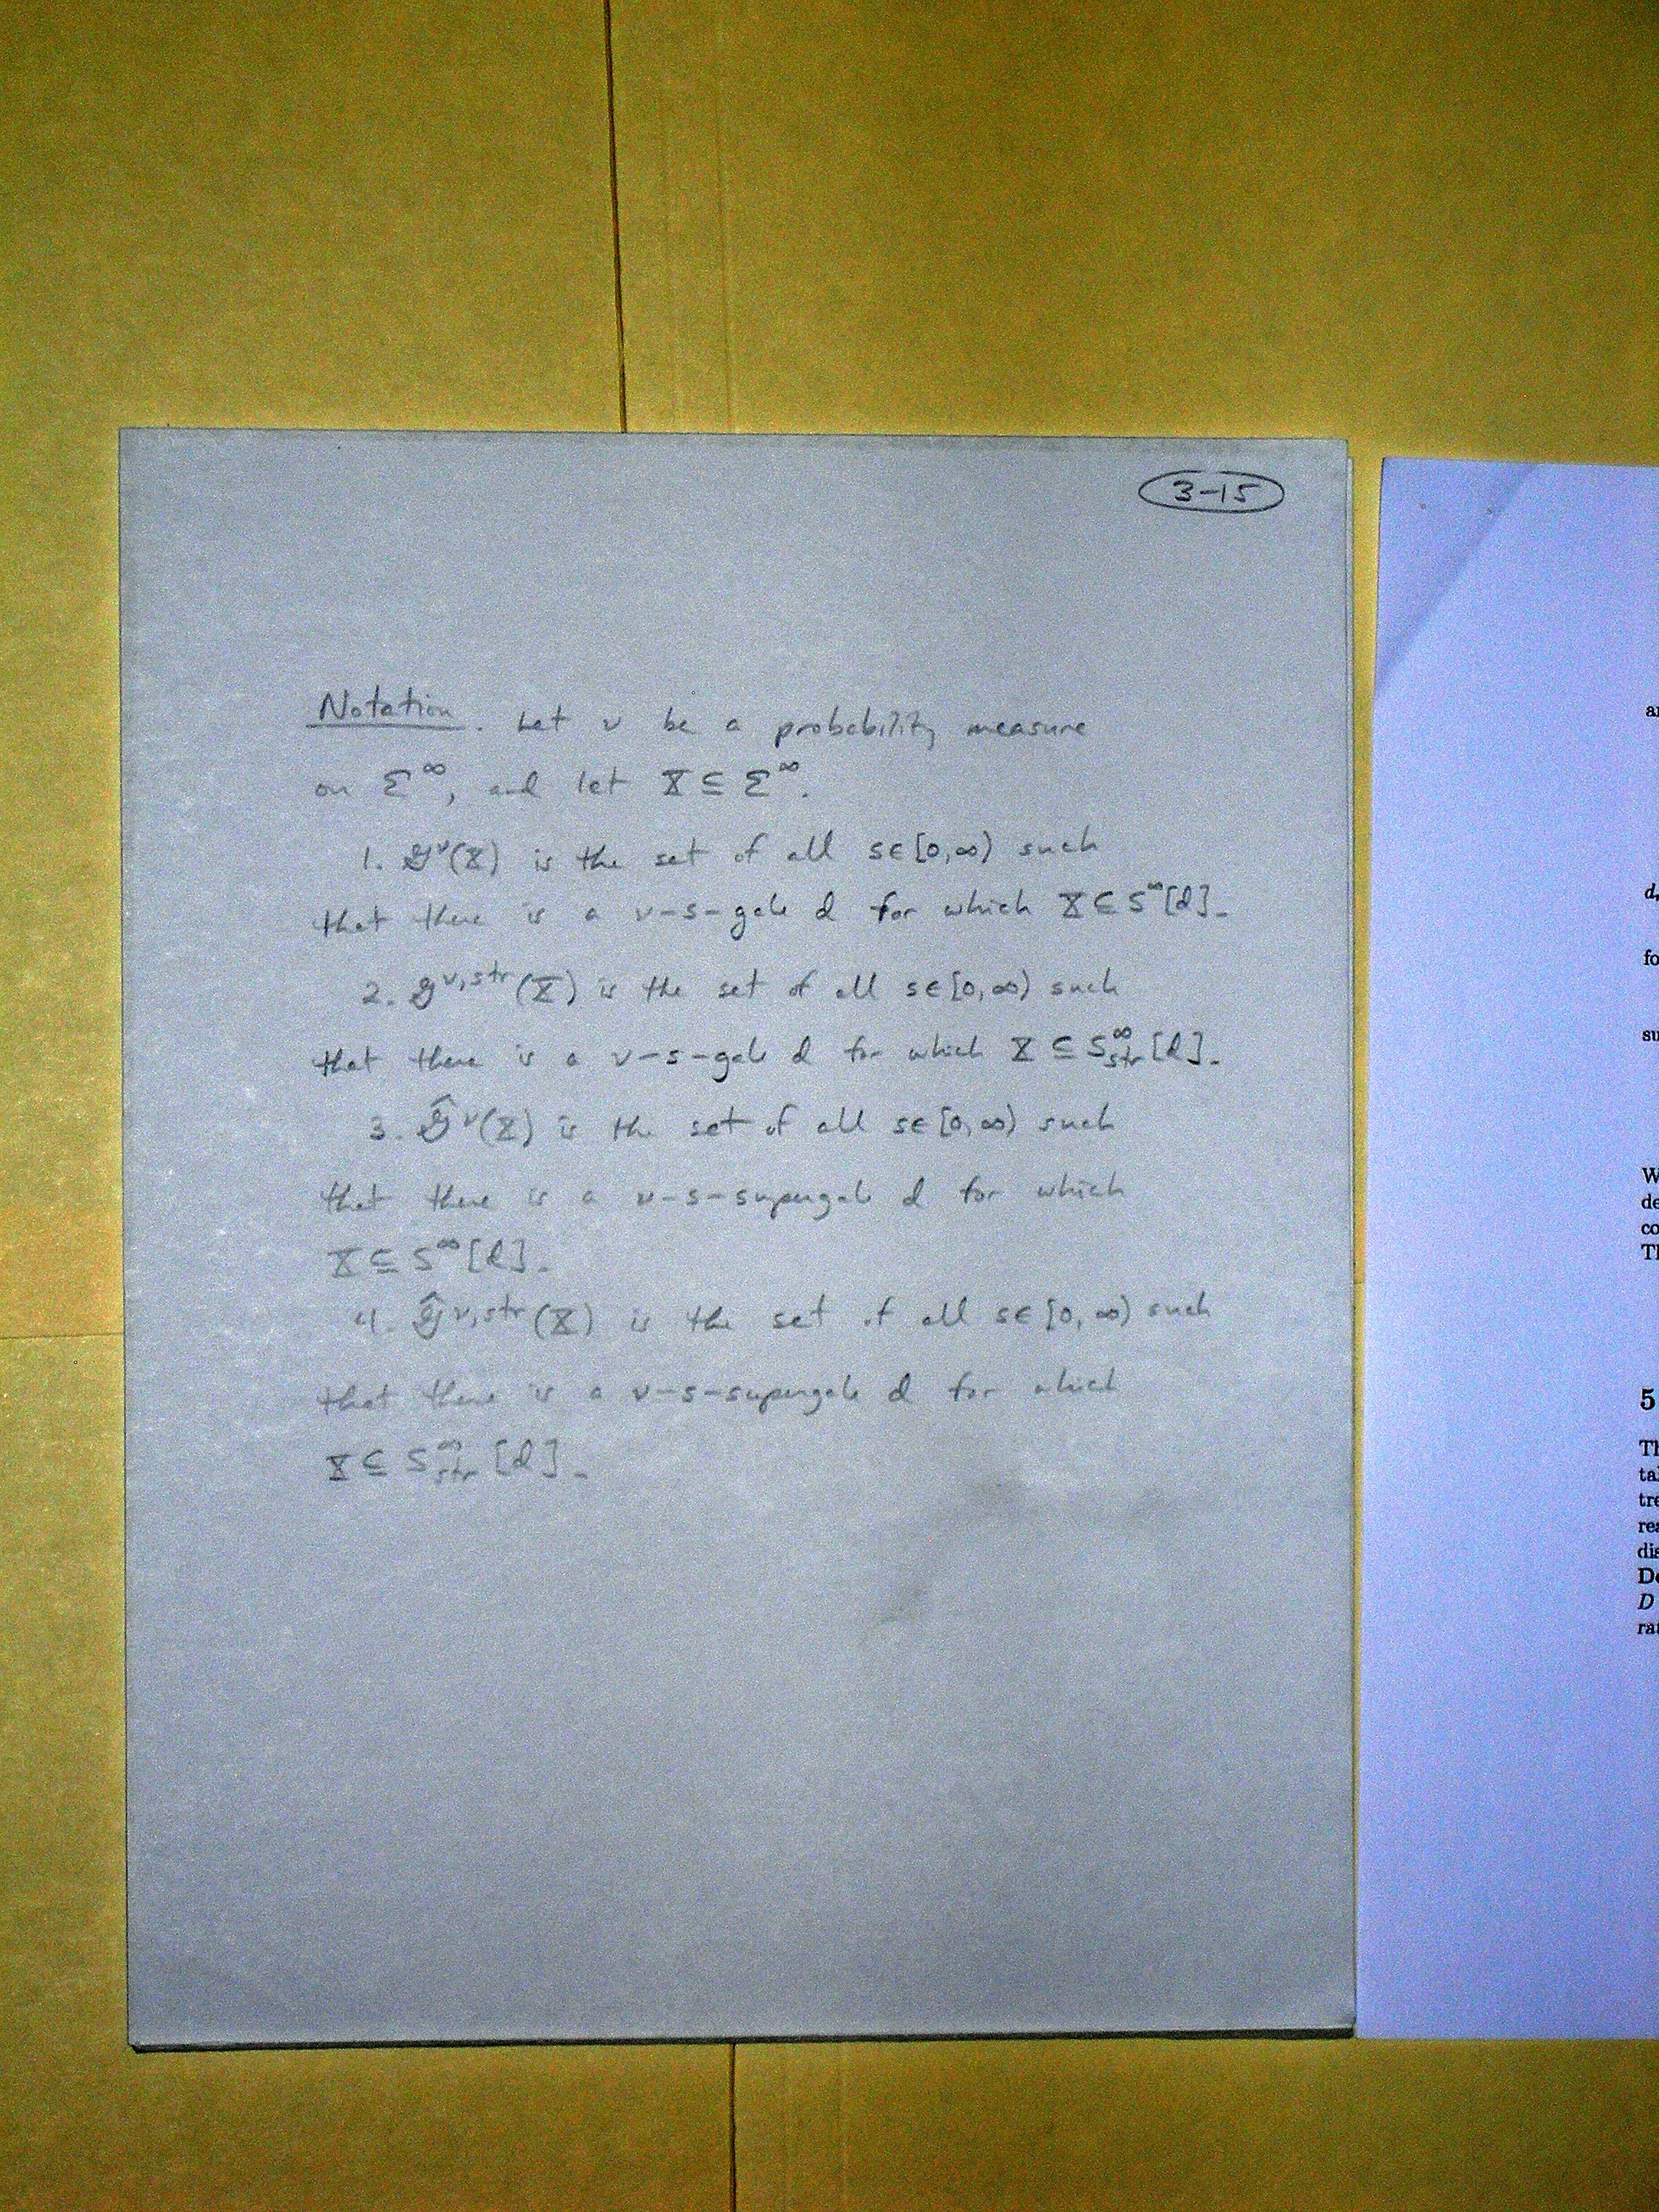 3-15
Notation. Let ν be a probability measure
on Σ^∞, and let X ⊆ Σ^∞.
1. 𝒢^ν(X) is the set of all s∈[0,∞) such
that there is a ν-s-gale d for which X ⊆ S^∞[d].
2. 𝒢^{ν,str}(X) is the set of all s∈[0,∞) such
that there is a ν-s-gale d for which X ⊆ S^∞_str[d].
3. 𝒢̂^ν(X) is the set of all s∈[0,∞) such
that there is a ν-s-supergale d for which
X ⊆ S^∞[d].
4. 𝒢̂^{ν,str}(X) is the set of all s∈[0,∞) such
that there is a ν-s-supergale d for which
X ⊆ S^∞_str[d].
d,
fo
su
W
de
co
5
D